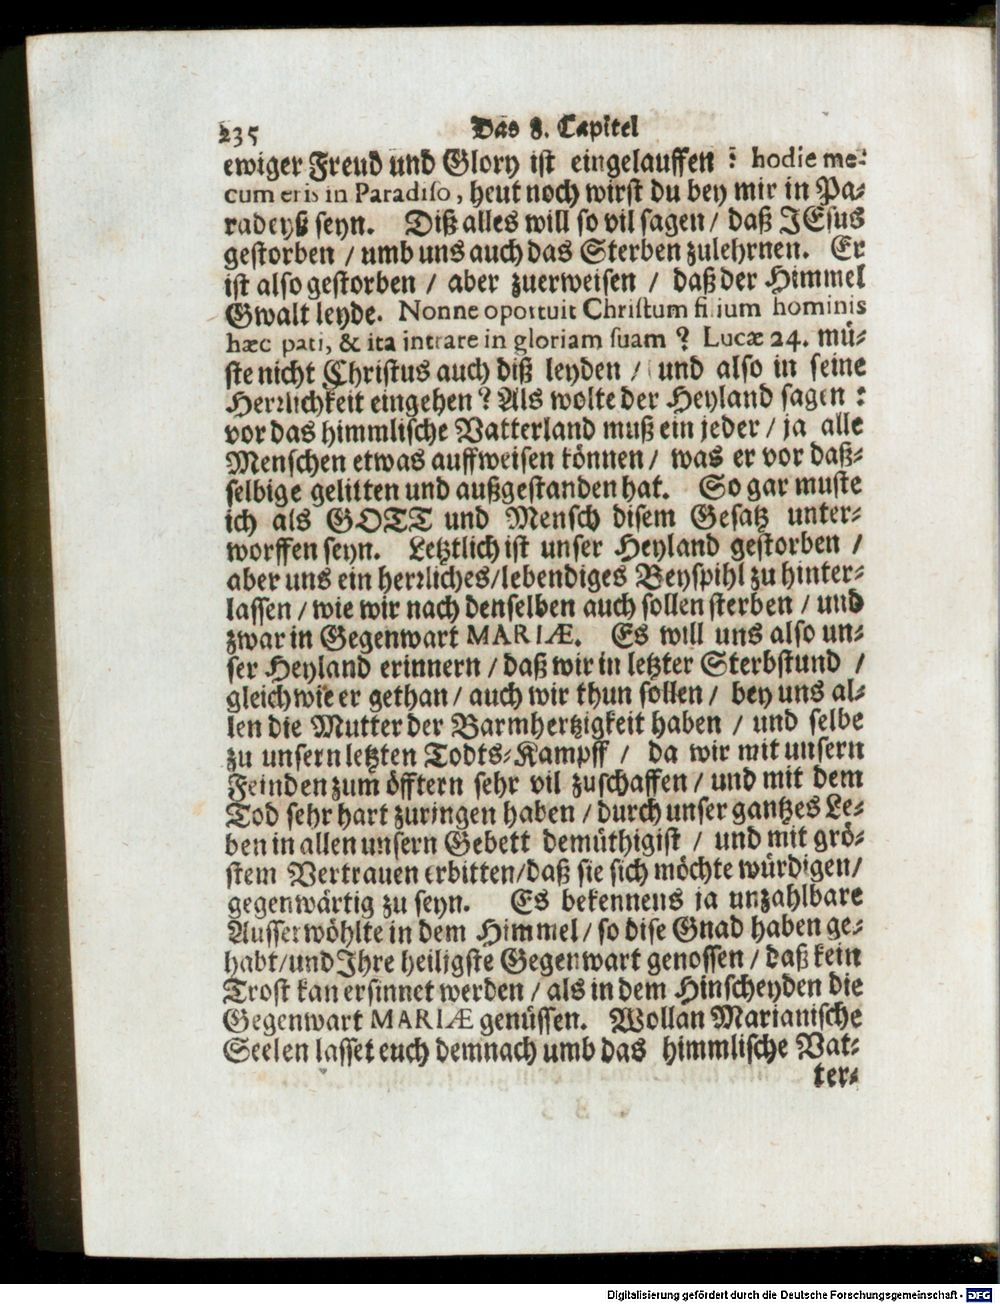 235 Das 8. Capitel
ewiger Freud und Glory ist eingelauffen : hodie me-
cum eris in Paradiso, heut noch wirst du bey mir in Pa-
radeyß seyn. Diß alles will so vil sagen / daß JEsus
gestorben / umb uns auch das Sterben zulehrnen. Er
ist also gestorben / aber zuerweisen / daß der Himmel
Gwalt leyde. Nonne oportuit Christum filium hominis
hæc pati, & ita intrare in gloriam suam ? Lucæ 24. mü-
ste nicht Christus auch diß leyden / und also in seine
Herrlichkeit eingehen ? Als wolte der Heyland sagen :
vor das himmlische Vatterland muß ein jeder / ja alle
Menschen etwas auffweisen können / was er vor daß-
selbige gelitten und außgestanden hat. So gar muste
ich als GOTT und Mensch disem Gesatz unter-
worffen seyn. Letztlich ist unser Heyland gestorben /
aber uns ein herrliches/lebendiges Beyspihl zu hinter-
lassen / wie wir nach denselben auch sollen sterben / und
zwar in Gegenwart MARIÆ. Es will uns also un-
ser Heyland erinnern / daß wir in letzter Sterbstund /
gleich wie er gethan / auch wir thun sollen / bey uns al-
len die Mutter der Barmhertzigkeit haben / und selbe
zu unsern letzten Todts-Kampff / da wir mit unsern
Feinden zum öfftern sehr vil zuschaffen / und mit dem
Tod sehr hart zuringen haben / durch unser gantzes Le-
ben in allen unsern Gebett demüthigist / und mit grö-
stem Vertrauen erbitten/daß sie sich möchte würdigen/
gegenwärtig zu seyn. Es bekennens ja unzahlbare
Ausserwöhlte in dem Himmel / so dise Gnad haben ge-
habt/und Ihre heiligste Gegenwart genossen / daß kein
Trost kan ersinnet werden / als in dem Hinscheyden die
Gegenwart MARIÆ genüssen. Wollan Marianische
Seelen lasset euch demnach umb das himmlische Vat-
ter-
Digitalisierung gefördert durch die Deutsche Forschungsgemeinschaft - DFG